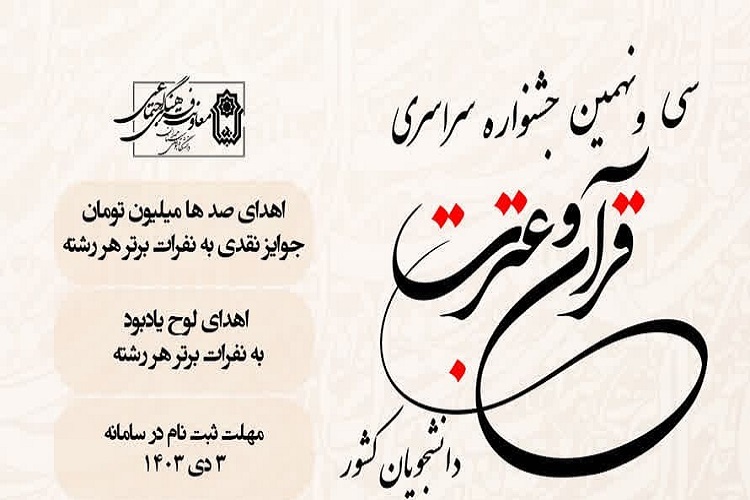 سی و نهمین جشنواره سراسری
قرآن و عترت
دانشجویان کشور
معاونت فرهنگی اجتماعی
اهدای صد ها میلیون تومان
جوایز نقدی به نفرات برتر هر رشته
اهدای لوح یادبود
به نفرات برتر هر رشته
مهلت ثبت نام در سامانه
۳ دی ۱۴۰۳